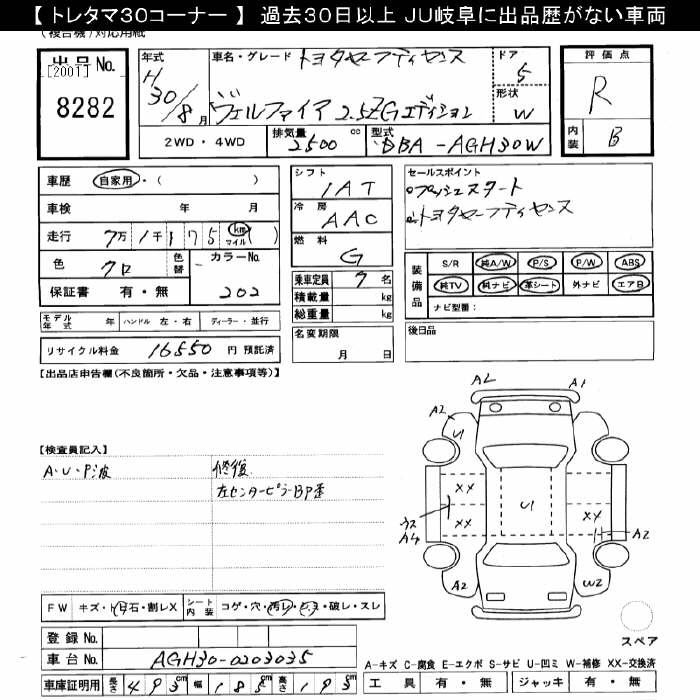 【 トレタマ30コーナー 】 過去30日以上 JU岐阜に出品歴がない車両
(複合機)対応用紙
出品No.
[2001]
8282
年式 H 30/8月
車名・グレード トヨタセーフティセンス
ヴェルファイア 2.5Z Gエディション
ドア 5
形状 W
評価点 R
内装 B
2WD・4WD
排気量 2500 cc
型式 DBA-AGH30W
車歴 自家用・( )
車検 年 月
走行 7万1千175 km マイル ( )
色 クロ
色替
カラーNo. 202
保証書 有・無
シフト IAT
冷房 AAC
燃料 G
乗車定員 7名
積載量 kg
総重量 kg
セールスポイント
・プッシュスタート
・トヨタセーフティセンス
装備品
S/R 純A/W P/S P/W ABS
純TV 純ナビ 革シート 外ナビ エアB
ナビ型番:
モデル年式 年 ハンドル 左・右 ディーラー・並行
リサイクル料金 16550 円 預託済
名変期限 月 日
後日品
【出品店申告欄(不良箇所・欠品・注意事項等)】
【検査員記入】
A・U・P波
修復
左センターピラーBP歪
A2 A1
A2 U1
XX XX
U1
XX XX
ウス A4
A2
A2 W2
スペア
FW キズ・飛石・割レX
シート内装 コゲ・穴・汚レ・シミ・破レ・スレ
登録No.
車台No. AGH30-0203035
車庫証明用 長さ 493 cm 幅 185 cm 高さ 193 cm
A-キズ C-腐食 E-エクボ S-サビ U-凹ミ W-補修 XX-交換済
工具 有・無 ジャッキ 有・無